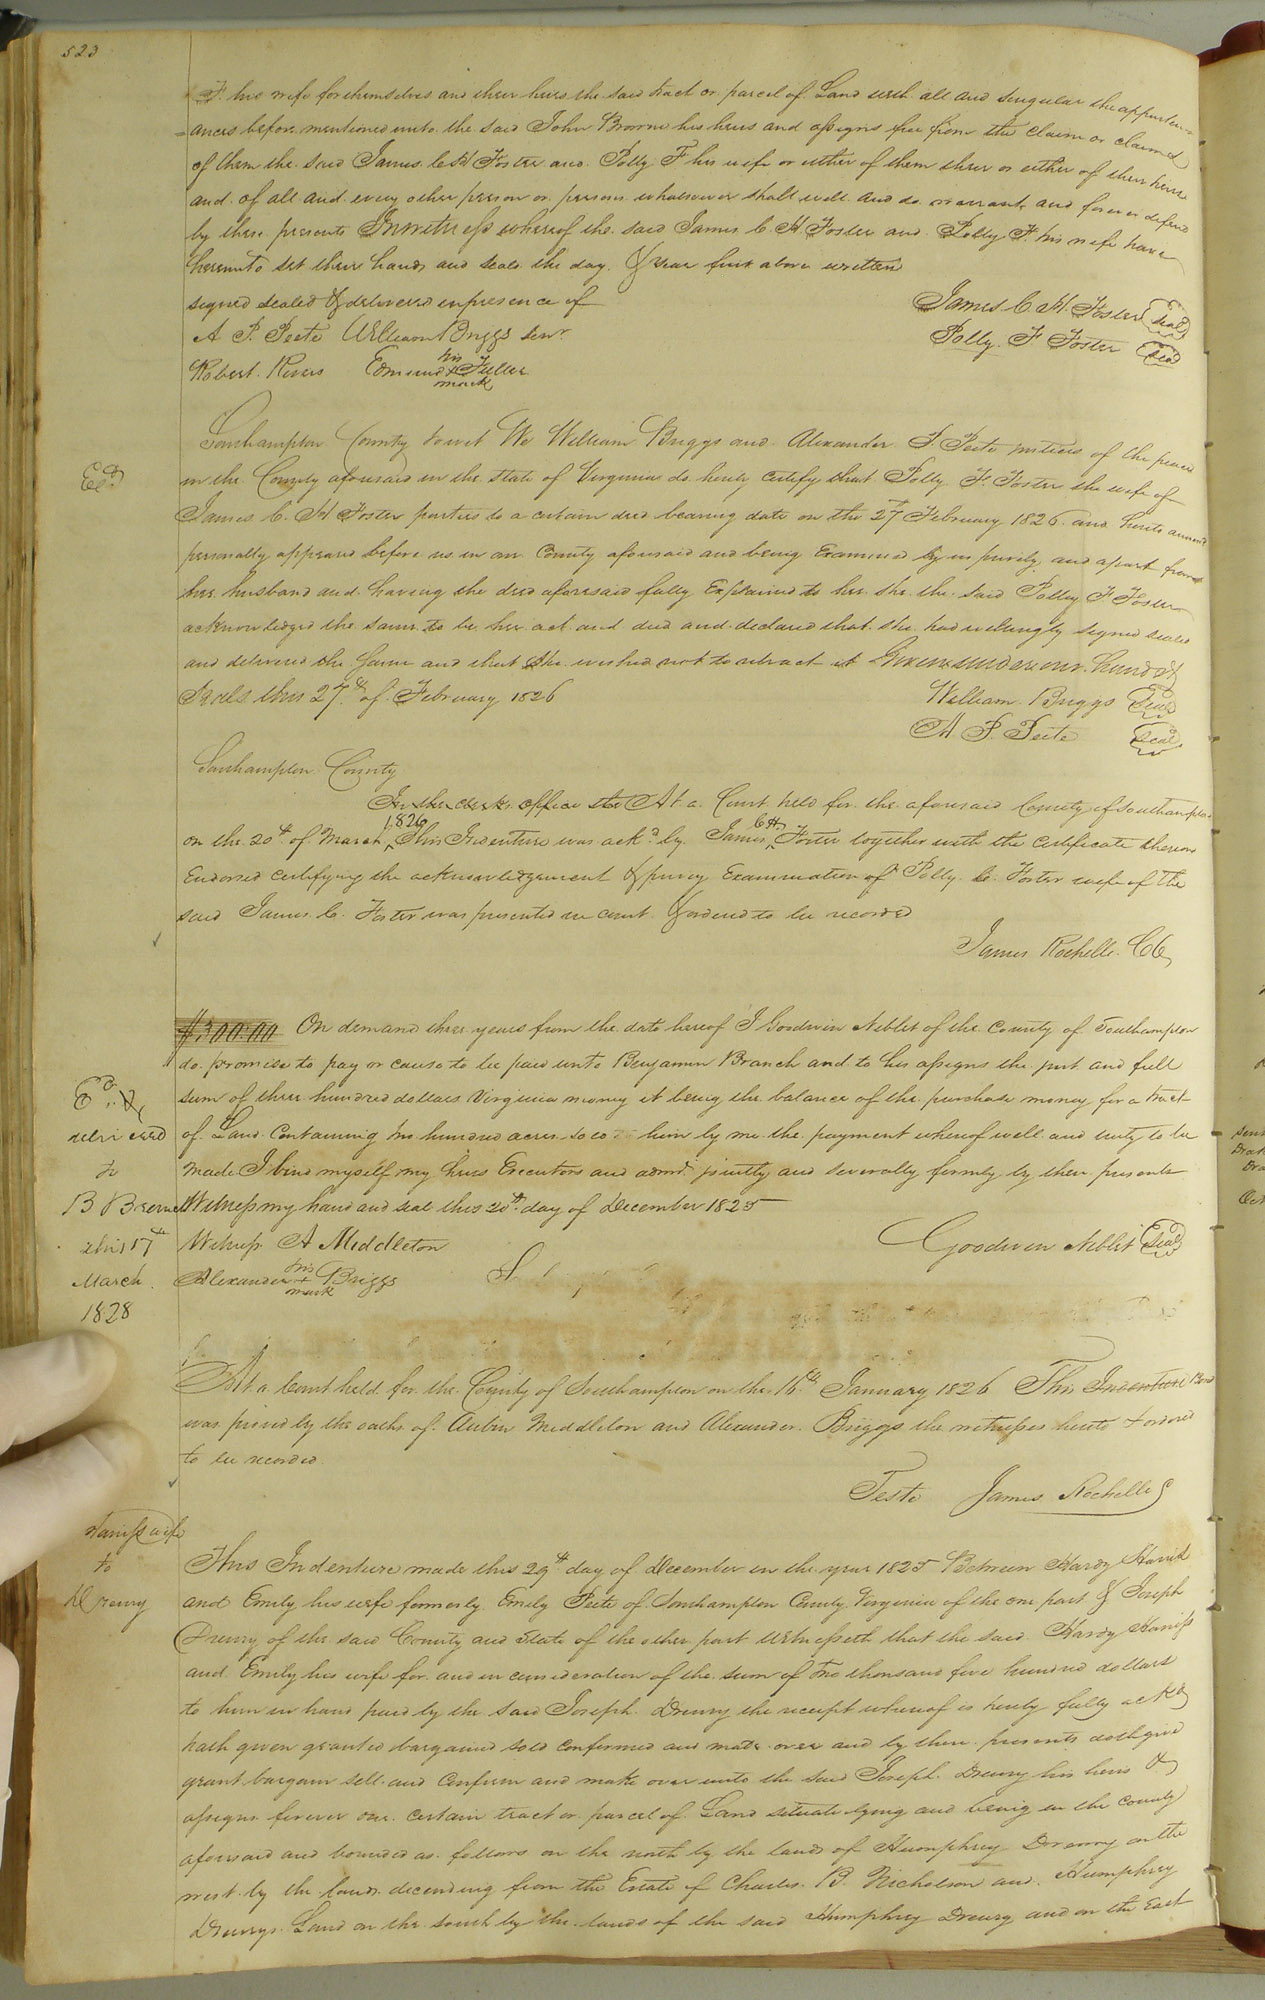 523
F. his wife for themselves and their heirs the said tract or parcel of Land with all and singular the appurten
ances before mentioned unto the said John Browne his heirs and assigns free from the claim or claims
of them the said James C H Foster and Polly F his wife or either of them their or either of their heirs
and of all and every other person or persons whatsoever shall will and do warrant and forever defend
by these presents In witness whereof the said James C. H. Foster and Polly F. his wife have
hereunto set their hands and seals the day & year first above written
signed sealed & delivered in presence of
James C. H. Foster Seal
A P. Peete William Briggs senr.
Polly. F. Foster Seal
Robert. Rivers Edmund his + mark Fuller
Southampton County towit We William Briggs and Alexander P. Peete justices of the peace
in the County aforesaid in the state of Virginia do hereby certify that Polly. F. Foster the wife of
James C. H Foster parties to a certain deed bearing date on the 27th February 1826 and hereto annexed
personally appeared before us in our County aforesaid and being Examined by us privily and apart from
her husband and having the deed aforesaid fully Explained to her she the said Polly F Foster
acknowledged the same to be her act and deed and declared that she had willingly signed sealed
and delivered the same and that she wished not to retract it Given under our hands &
Seals this 27th of February 1826
William Briggs Seal
A P. Peete Seal
Southampton County
In the clerks office the At a Court held for the aforesaid County of Southampton
on the 20th of March 1826 This Indenture was ackd by James C H. Foster together with the certificate thereon
Endorsed certifying the acknowledgement & privy Examination of Polly C. Foster wife of the
said James C. Foster was presented in court & ordered to be recorded
James Rochelle CC
$300.00 On demand three years from the date hereof I Goodwin Neblet of the County of Southampton
do promise to pay or cause to be paid unto Benjamin Branch and to his assigns the just and full
sum of three hundred dollars Virginia money it being the balance of the purchase money for a tract
of Land Containing two hundred acres sold him by me the payment whereof well and truly to be
made I bind myself my heirs Executors and admrs jointly and severally firmly by these presents
Witness my hand and seal this 20th day of December 1825
Witness A Middleton
Goodwin Neblet Seal
Alexander his + mark Briggs
delivered
to
B
this 17th
March
1828
At a Court held for the County of Southampton on the 16th January 1826 This Indenture Bond
was proved by the oaths of Middleton and Alexander Briggs the witnesses hereto & ordered
to be recorded
Teste James Rochelle
Hariss & wife
to
Drewry
This Indenture made this 29th day of December in the year 1825 Between Hardy Hariss
and Emily his wife formerly Emily Peete of Southampton County Virginia of the one part & Joseph
Drewry of the said County and State of the other part Witnesseth that the said Hardy Hariss
and Emily his wife for and in consideration of the sum of Two thousand five hundred dollars
to him in hand paid by the said Joseph Drewry the receipt whereof is hereby fully ackd
hath given granted bargained sold confirmed and made over and by these presents doth give
grant bargain sell and confirm and make over unto the said Joseph Drewry his heirs &
assigns forever one certain tract or parcel of Land situate lying and being in the county
aforesaid and bounded as follows on the north by the lands of Humphrey Drewry on the
west by the lands decending from the Estate of Charles B. Nicholson and Humphrey
Drewrys Land on the south by the lands of the said Humphrey Drewry and on the East